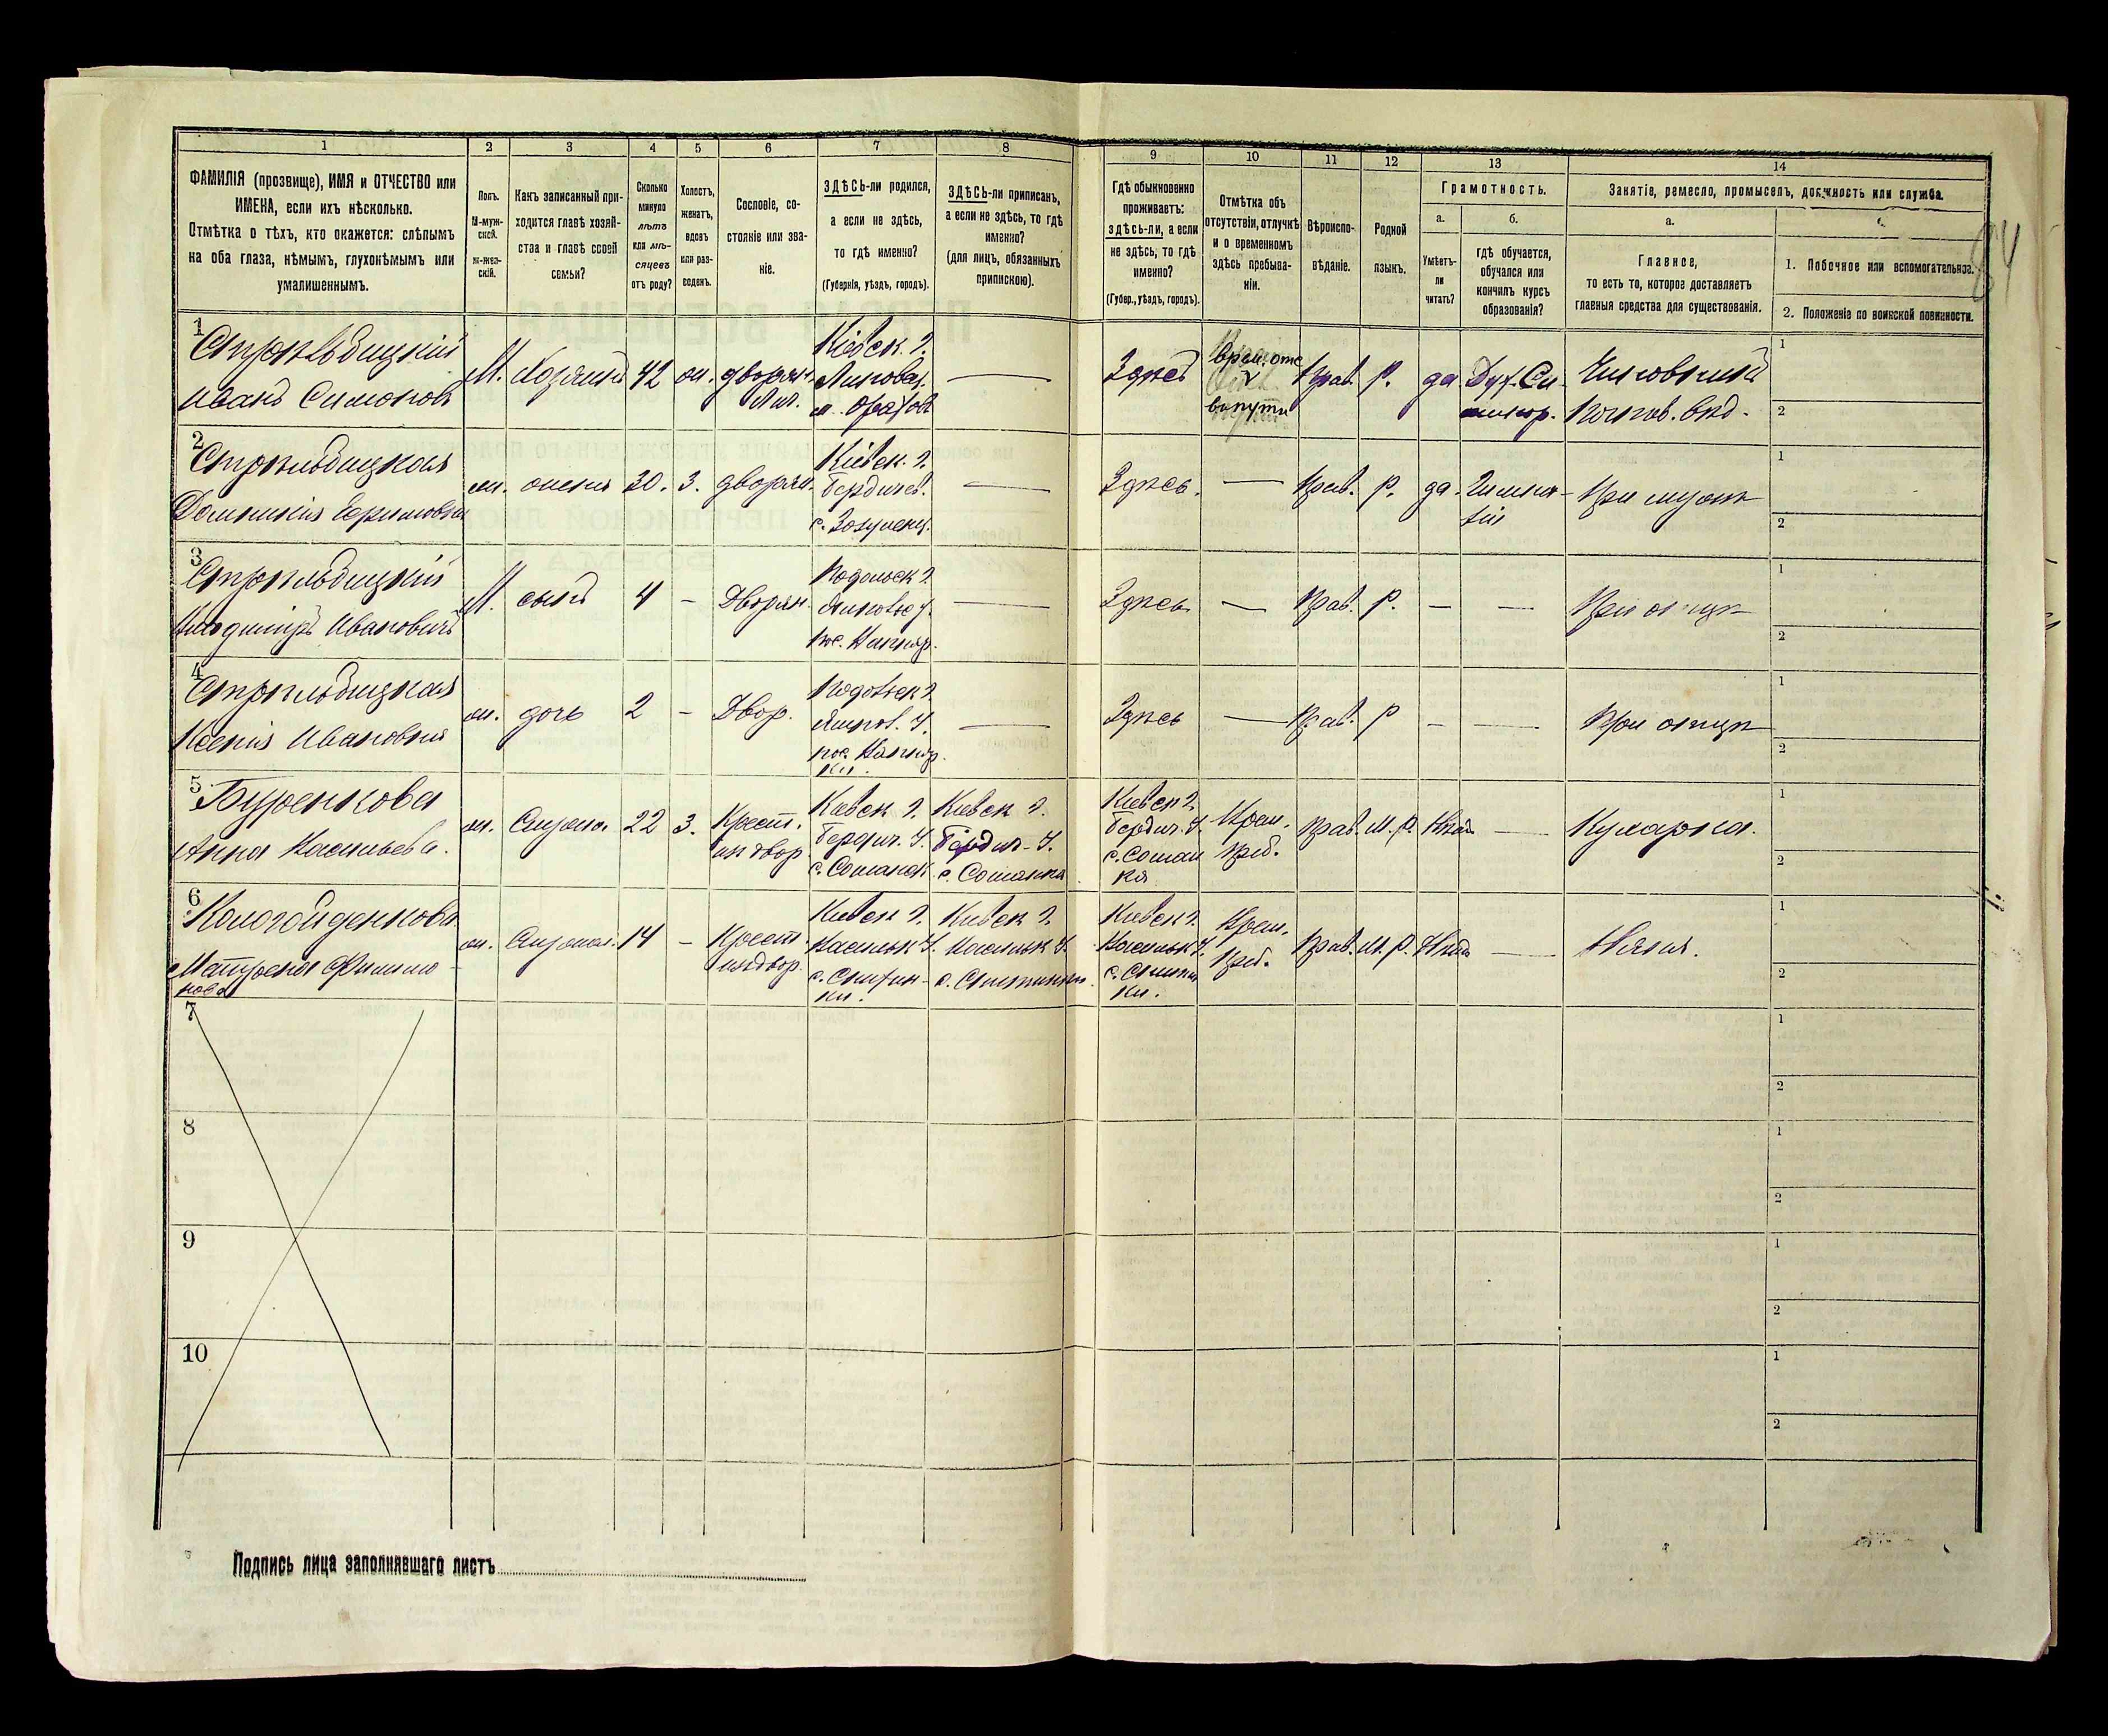 1 2 3 4 5 6 7 8 9 10 11 12 13 14
ФАМИЛІЯ (прозвище), ИМЯ и ОТЧЕСТВО или
ИМЕНА, если ихъ нѣсколько.
Отмѣтка о тѣхъ, кто окажется: слѣпымъ
на оба глаза, нѣмымъ, глухонѣмымъ или
умалишеннымъ.
Полъ.
М-муж-
ской.
Ж-жен-
скій.
Какъ записанный при-
ходится главѣ хозяй-
ства и главѣ своей
семьи?
Сколько
минуло
лѣтъ
или мѣ-
сяцевъ
отъ роду?
Холостъ,
женатъ,
вдовъ
или раз-
веденъ.
Сословіе, со-
стояніе или зва-
ніе.
ЗДѢСЬ-ли родился,
а если не здѣсь,
то гдѣ именно?
(Губернія, уѣздъ, городъ).
ЗДѢСЬ-ли приписанъ,
а если не здѣсь, то гдѣ
именно?
(для лицъ, обязанныхъ
припискою).
Гдѣ обыкновенно
проживаетъ:
здѣсь-ли, а если
не здѣсь, то гдѣ
именно?
(Губер., уѣздъ, городъ).
Отмѣтка объ
отсутствіи, отлучкѣ
и о временномъ
здѣсь пребыва-
ніи.
Вѣроиспо-
вѣданіе.
Родной
языкъ.
Грамотность.
а.
Умѣетъ-
ли
читать?
б.
гдѣ обучается,
обучался или
кончилъ курсъ
образованія?
Занятіе, ремесло, промыселъ, должность или служба.
а.
Главное,
то есть то, которое доставляетъ
главныя средства для существованія.
1. Побочное или вспомогательное.
2. Положеніе по воинской повинности.
84
1
Стрѣльбицкій
Иванъ Симоновъ
М. Хозяинъ 42 ж. дворян.
Лич.
Кіевск. г.
Липовец.
м. Оратовъ
—
Здѣсь
врем. отс
в пути
Прав. р. да Дух. Се-
минар.
Чиновникъ
1
2
2
Стрѣльбицкая
ж. жена 30. 3. дворян.
Кіевск. г.
Бердичев.
—
Здѣсь.
— Прав. р. да Гимна-
зія
При мужѣ
1
2
3
Стрѣльбицкій
Владиміръ Ивановичъ
М. сынъ 4 – Дворян.
Подольск г.
—
Здѣсь
— Прав. р. – —
При отцѣ
1
2
4
Стрѣльбицкая
Ксенія Ивановна
ж. дочь 2 – Двор.
—
Здѣсь
— Прав. р – —
При отцѣ
1
2
5
Буренкова
Анна Васильева.
ж. 22 3. Крест.
Кіевск г.
Бердич. У.
Кіевск г.
Бердич. У.
с. Сошанка
Кіевск г.
Бердич. У.
с. Сошан
ка
Врем.
преб.
Прав. М. р. Нѣтъ —
Кухарка.
1
2
6
ж. 14 – Крест.
Кіевск г.
Васильк У.
Кіевск г.
Васильк У.
Кіевск г.
Васильк У.
Врем.
преб.
Прав. М. р. Нѣтъ —
Няня.
1
2
7
1
2
8
1
2
9
1
2
10
1
2
Подпись лица заполнявшаго листъ